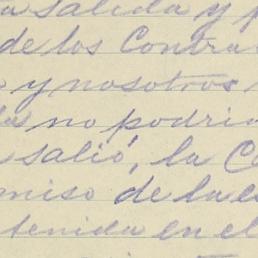 salida y
de los Contra
y nosotros
no podria
salió, la Co
miso de la e
tenida en el